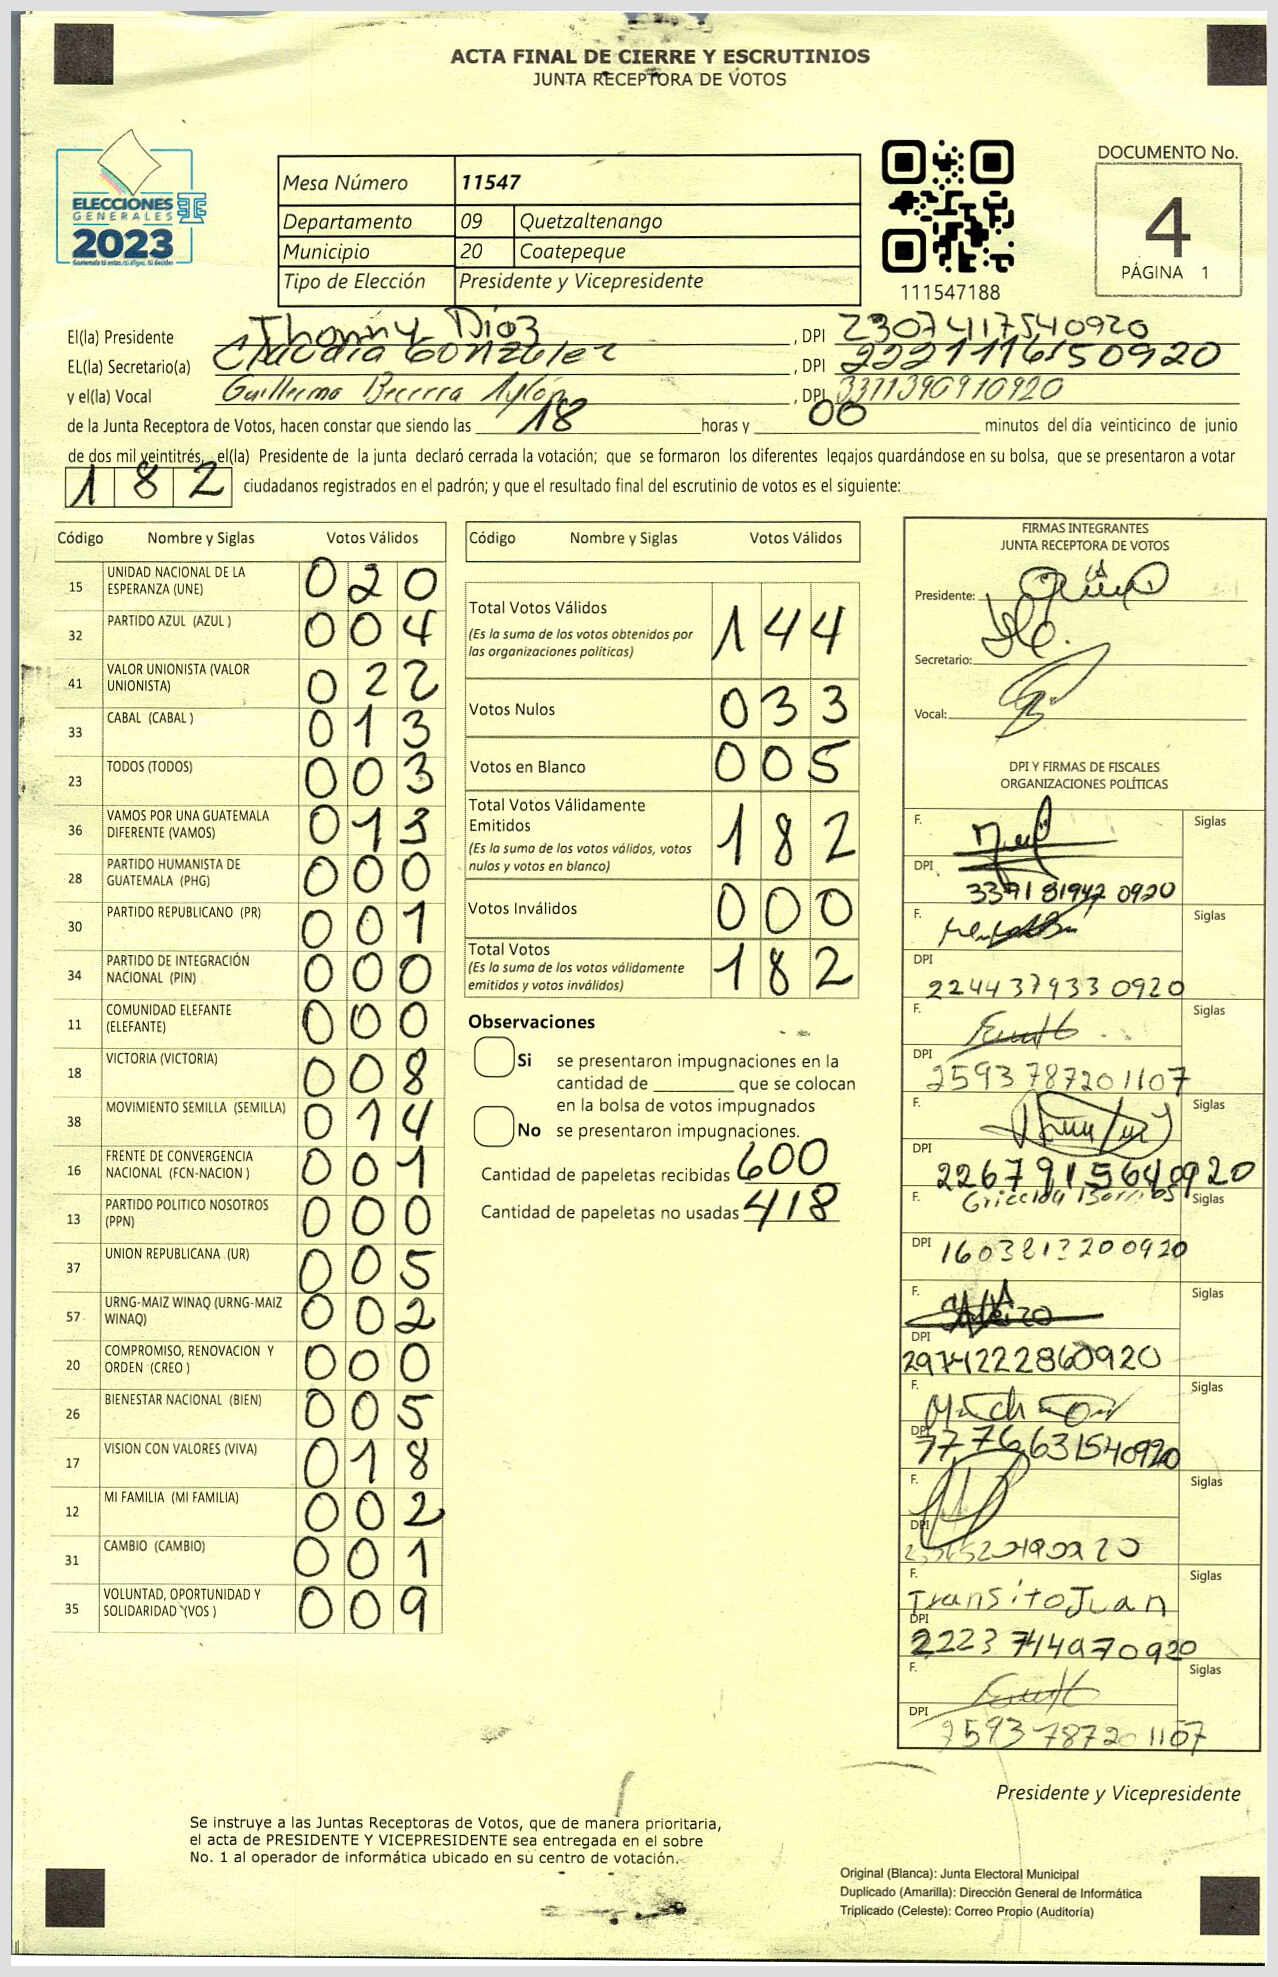 ACTA FINAL DE CIERRE Y ESCRUTINIOS
JUNTA RECEPTORA DE VOTOS
ELECCIONES
GENERALES
2023
Mesa Número 11547
Departamento 09 Quetzaltenango
Municipio 20 Coatepeque
Tipo de Elección Presidente y Vicepresidente
111547188
DOCUMENTO No.
4
PÁGINA 1
El(la) Presidente Jhonny Díaz, DPI 2307417540920
EL(la) Secretario(a) Claudia Gonzalez, DPI 2221116150920
y el(la) Vocal Guillermo Becerra, DPI 3371390910920
de la Junta Receptora de Votos, hacen constar que siendo las 18 horas y 00 minutos del día veinticinco de junio
de dos mil veintitrés, el(la) Presidente de la junta declaró cerrada la votación; que se formaron los diferentes legajos quardándose en su bolsa, que se presentaron a votar
182 ciudadanos registrados en el padrón; y que el resultado final del escrutinio de votos es el siguiente:
Código Nombre y Siglas Votos Válidos
15 UNIDAD NACIONAL DE LA ESPERANZA (UNE) 020
32 PARTIDO AZUL (AZUL ) 004
41 VALOR UNIONISTA (VALOR UNIONISTA) 022
33 CABAL (CABAL ) 013
23 TODOS (TODOS) 003
36 VAMOS POR UNA GUATEMALA DIFERENTE (VAMOS) 013
28 PARTIDO HUMANISTA DE GUATEMALA (PHG) 000
30 PARTIDO REPUBLICANO (PR) 001
34 PARTIDO DE INTEGRACIÓN NACIONAL (PIN) 000
11 COMUNIDAD ELEFANTE (ELEFANTE) 000
18 VICTORIA (VICTORIA) 008
38 MOVIMIENTO SEMILLA (SEMILLA) 014
16 FRENTE DE CONVERGENCIA NACIONAL (FCN-NACION ) 001
13 PARTIDO POLITICO NOSOTROS (PPN) 000
37 UNION REPUBLICANA (UR) 005
57 URNG-MAIZ WINAQ (URNG-MAIZ WINAQ) 002
20 COMPROMISO, RENOVACION Y ORDEN (CREO ) 000
26 BIENESTAR NACIONAL (BIEN) 005
17 VISION CON VALORES (VIVA) 018
12 MI FAMILIA (MI FAMILIA) 002
31 CAMBIO (CAMBIO) 001
35 VOLUNTAD, OPORTUNIDAD Y SOLIDARIDAD (VOS ) 009
Código Nombre y Siglas Votos Válidos
Total Votos Válidos 144
(Es la suma de los votos obtenidos por
las organizaciones políticas)
Votos Nulos 033
Votos en Blanco 005
Total Votos Válidamente
Emitidos 182
(Es la suma de los votos válidos, votos
nulos y votos en blanco)
Votos Inválidos 000
Total Votos 182
(Es la suma de los votos válidamente
emitidos y votos inválidos)
Observaciones
Si se presentaron impugnaciones en la
cantidad de ________ que se colocan
en la bolsa de votos impugnados
No se presentaron impugnaciones.
Cantidad de papeletas recibidas 600
Cantidad de papeletas no usadas 418
FIRMAS INTEGRANTES
JUNTA RECEPTORA DE VOTOS
Presidente:
Secretario:
Vocal:
DPI Y FIRMAS DE FISCALES
ORGANIZACIONES POLÍTICAS
F. Siglas
DPI 3371819420920
F. Siglas
DPI 2244379330920
F. Siglas
DPI 2593787201107
F. Siglas
DPI 2267915640920
F. Siglas
DPI 1603213200920
F. Siglas
DPI 2974222860920
F. Siglas
DPI 7776631540920
F. Siglas
DPI
F. Transito Juan Siglas
DPI 2223714970920
F. Siglas
DPI 2593787201107
Presidente y Vicepresidente
Se instruye a las Juntas Receptoras de Votos, que de manera prioritaria,
el acta de PRESIDENTE Y VICEPRESIDENTE sea entregada en el sobre
No. 1 al operador de informática ubicado en su centro de votación.
Original (Blanca): Junta Electoral Municipal
Duplicado (Amarilla): Dirección General de Informática
Triplicado (Celeste): Correo Propio (Auditoría)